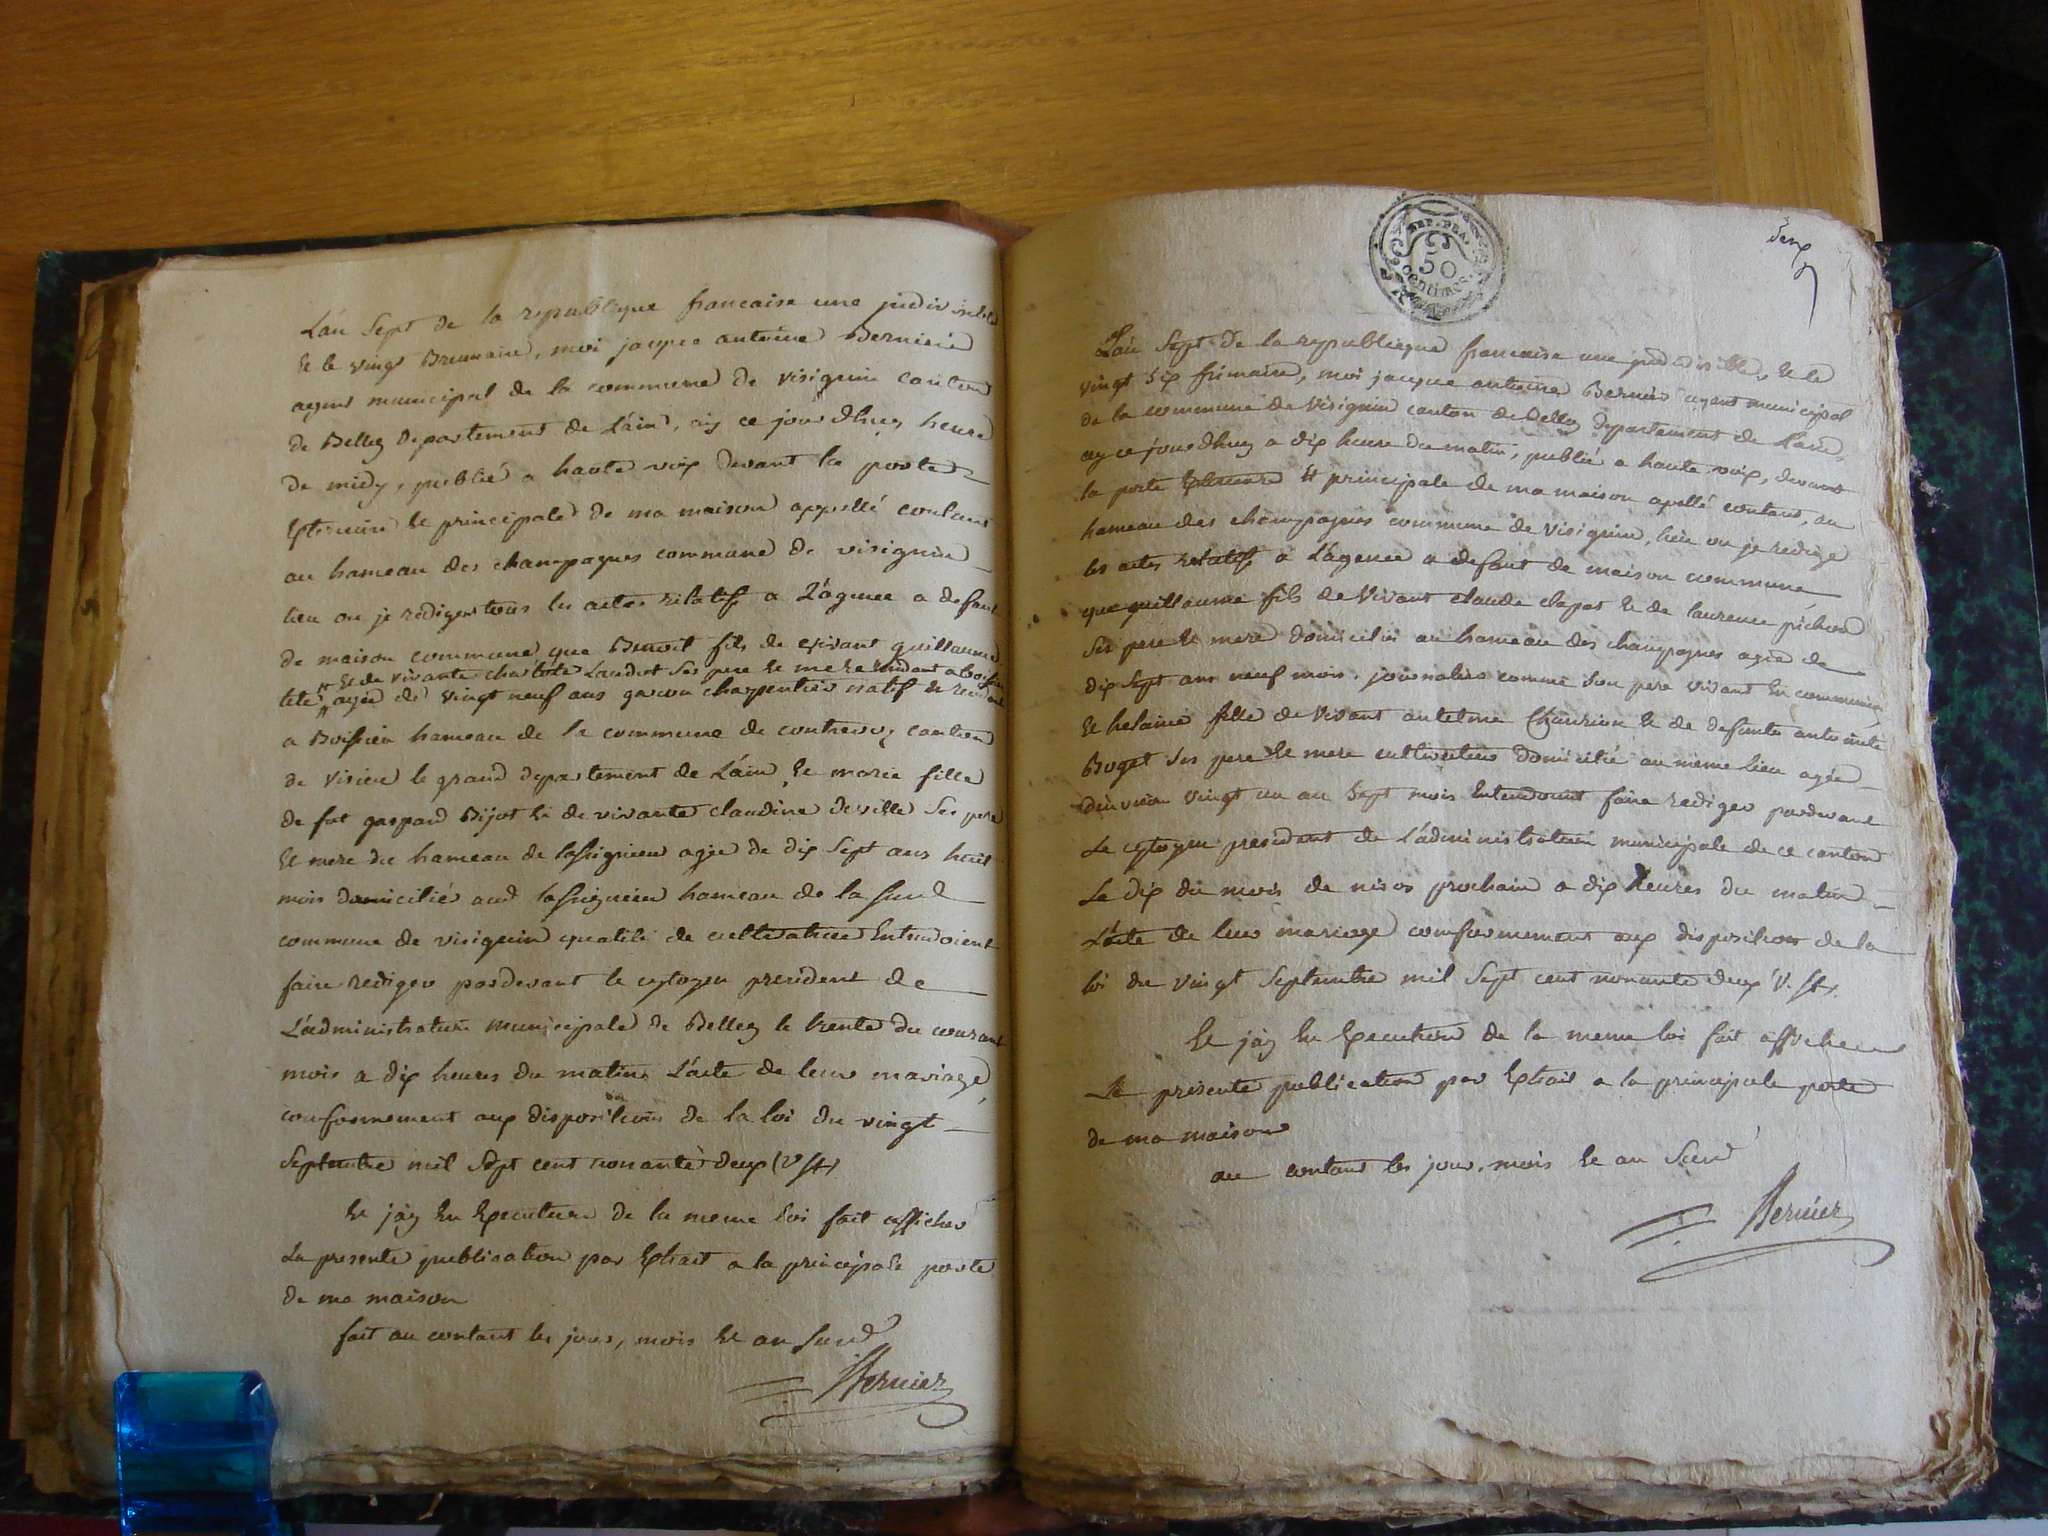 L'an Sept de la republique francaise une jndivisible
et le vingt Brumaire, moi jacque antoine Bernier
agent municipal de la commune de visignin canton
de Belley departement de L'ain, ay ce jourdhuy heure
de midy, publié a haute voix devant la porte
Exterieure et principale de ma maison appellé contant
au hameau des champagnes commune de visignin
lieu ou je rediger tous les actes relatif a L'agence a defaut
de maison commune que Benoit fils de vivant guillaume
et de vivante charlote Landot ses pere et mere
agée de vingt neuf ans garcon charpentier natif et
a Boissieu hameau de la commune de contrevoz canton
de virieu le grand departement de L'ain, et marie fille
de fut gaspard Bijot et de vivante claudine deville ses pere
et mere du hameau de lassignieu agée de dix Sept ans huit
mois domicilié aud lassignieu hameau de la Susd
commune de visignin qualité de cultivatrice Entendoient
faire rediger pardevant le cytoyen president de
L'administration municipale de Belley le trente du courant
mois a dix heures du matin L'acte de leur mariage,
conformement aux dispositions de la loi du vingt
Septembre mil Sept cent nonante deux (v St)
et j'ay En Execution de la meme loi fait afficher
La presente publication par Extrait a la principale porte
de ma maison
fait au contant les jour, mois et an Susd
Bernier
REP. FRA.
50
centimes
deux
L'an Sept de la republique francaise une jndivisible, et le
vingt Six frimaire, moi jacque antoine Bernier agent municipal
de la commune de visignin canton de Belley departement de L'ain,
ay ce jourdhuy a dix heure du matin, publié a haute voix, devant
la porte Exterieure et principale de ma maison apellé contant, au
hameau des champagnes commune de visignin, lieu ou je redige
les actes relatifs a L'agence a defaut de maison commune
que guillaume fils de vivant claude clapot et de laurence pichod
Ses pere et mere domicilié au hameau des champagnes agée de
dix Sept ans neuf mois, journalier comme Son pere vivant En commun,
et helaine fille de vivant antelme Chaurion et de defunte antoinete
Buget Ses pere et mere cultivateur domicilié au meme lieu agée
dinviron vingt un an Sept mois Entendoint faire rediger pardevant
Le cytoyen president de L'administration municipale de ce canton
Le dix du mois de nivos prochain a dix heures du matin
L'acte de leur mariage conformement aux disposition de la
loi du vingt Septembre mil Sept cent nonante deux V. St.
et j'ay En Execution de la meme loi fait afficher
La presente publication par Extrait a la principale porte
de ma maison
au contant les jour, mois et an Susd
Bernier